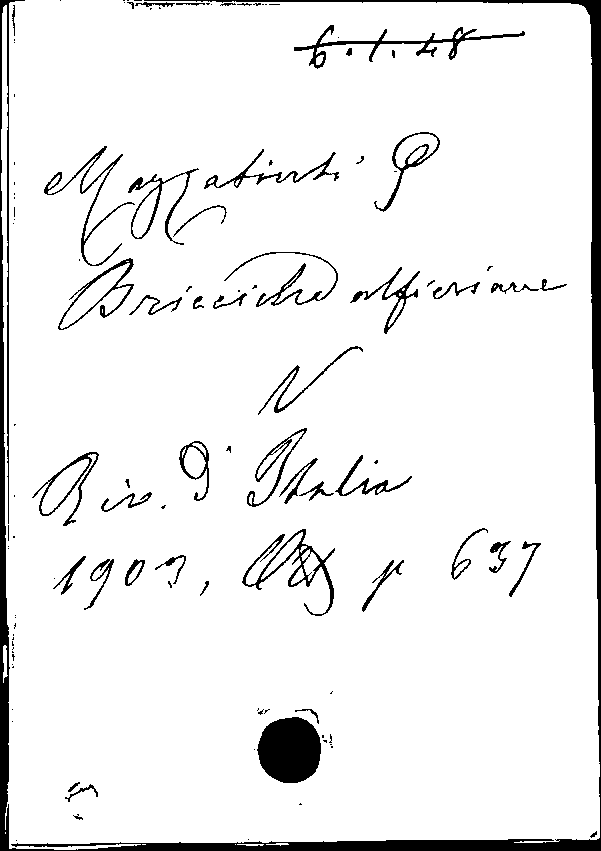 6.1.48
Mazzatinti G
Bricciche alfieriane
V
Riv. d'Italia
1903, p 637